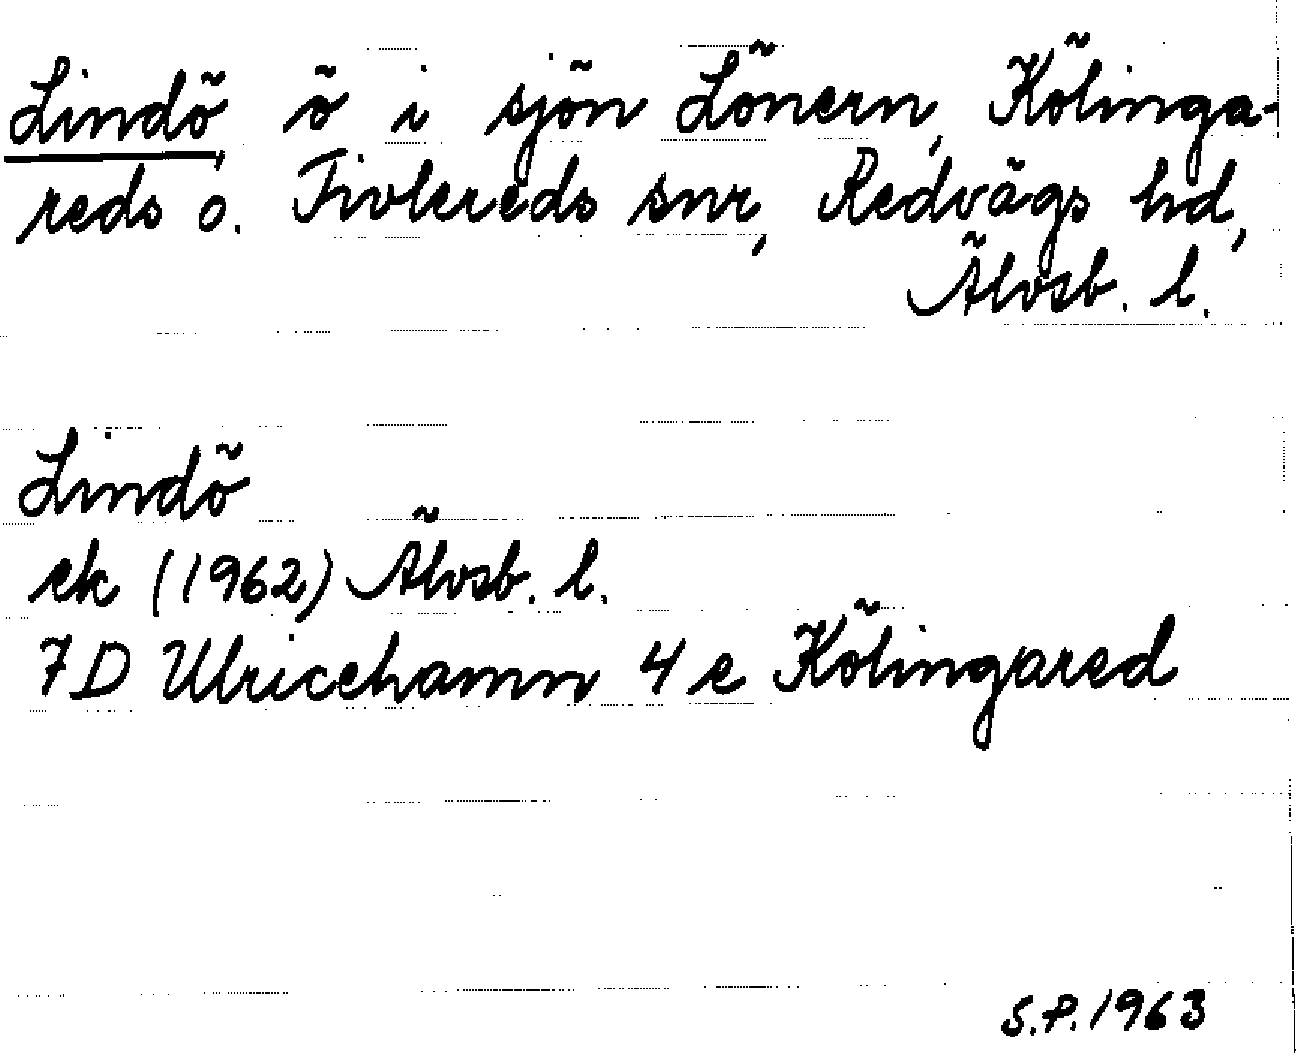 Lindö, ö i sjön Lönern, Kölinga-
reds o. Tivlereds snr, Redvägs hd,
Älvsb. l.
Lindö
ek (1962) Älvsb. l.
7D Ulricehamn 4 e Kölingared
S.P. 1963